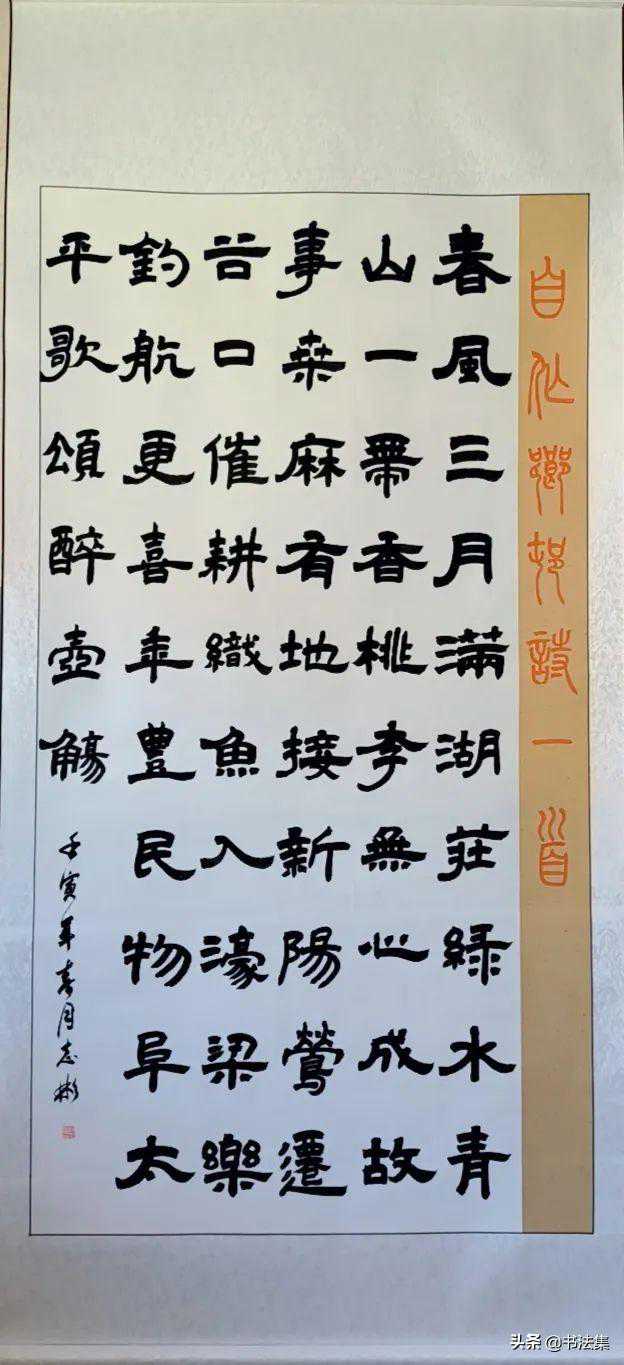 自作鄉村詩一首
春風三月滿湖莊綠水青
山一帶香桃李無心成故
事桑麻有地接新陽鶯遷
谷口催耕織魚入濠梁樂
釣航更喜年豐民物阜太
平歌頌醉壺觴
壬寅年春月志彬
头条 @书法集